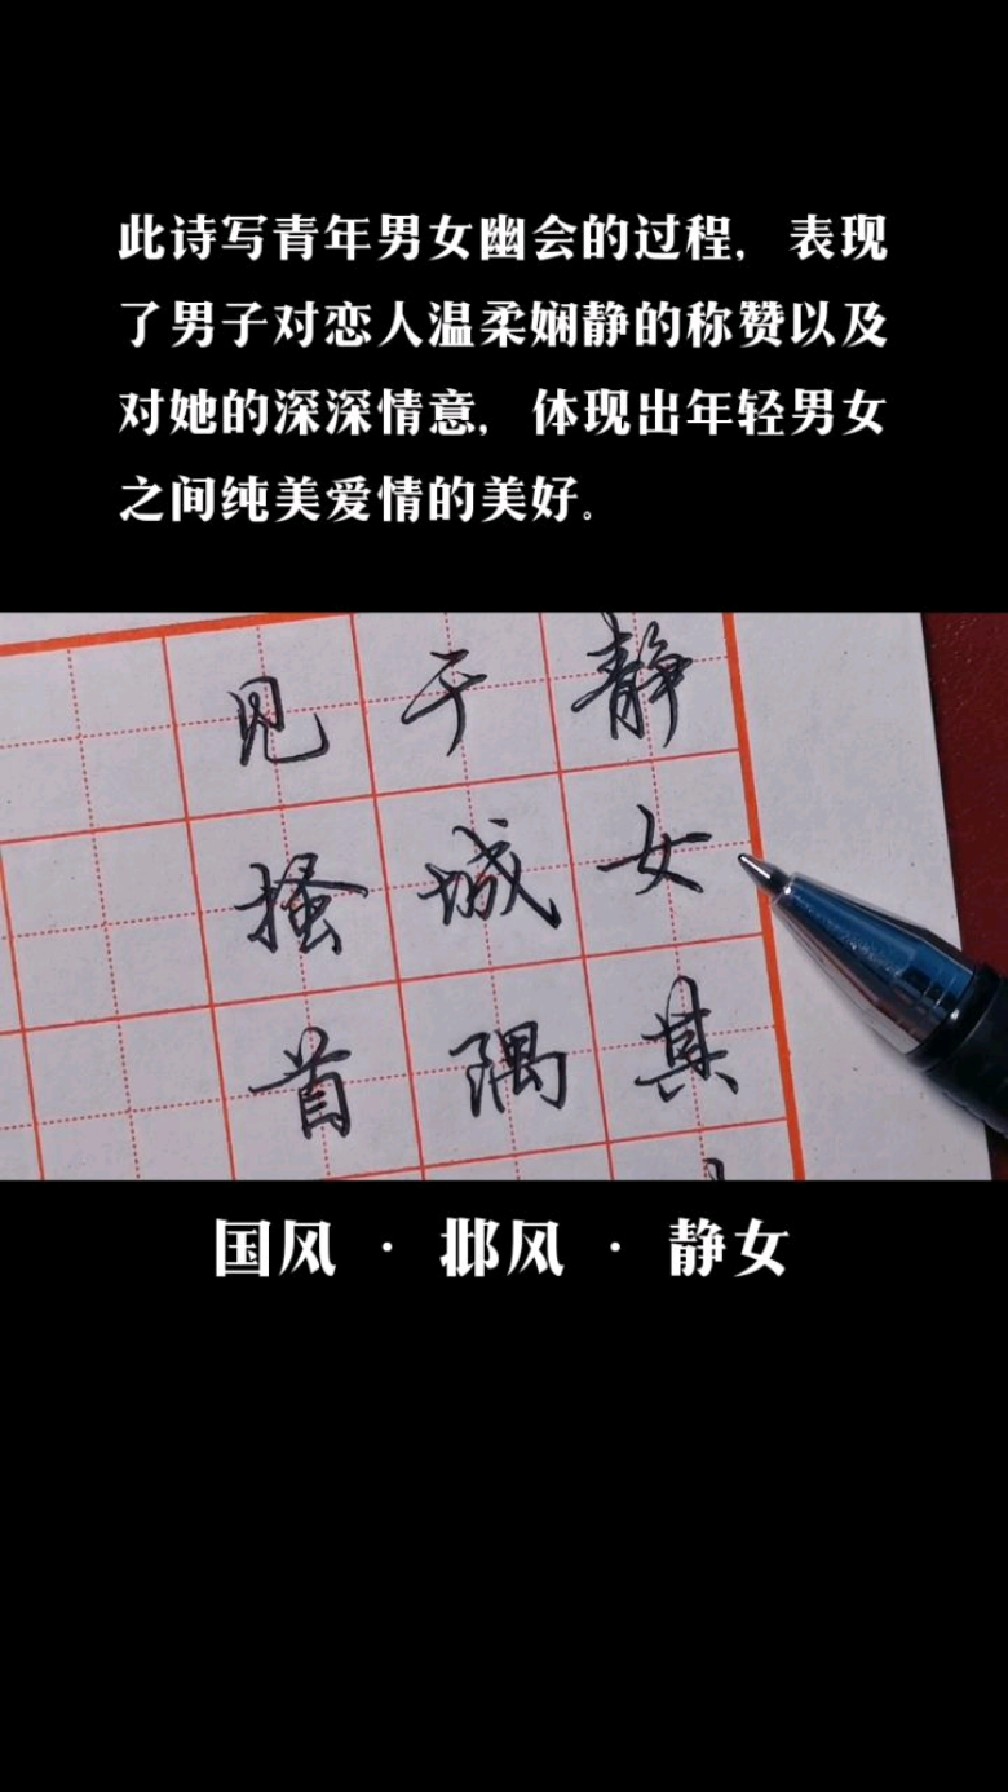 此诗写青年男女幽会的过程，表现
了男子对恋人温柔娴静的称赞以及
对她的深深情意，体现出年轻男女
之间纯美爱情的美好。
静女其
于城隅
见搔首
国风 · 邶风 · 静女